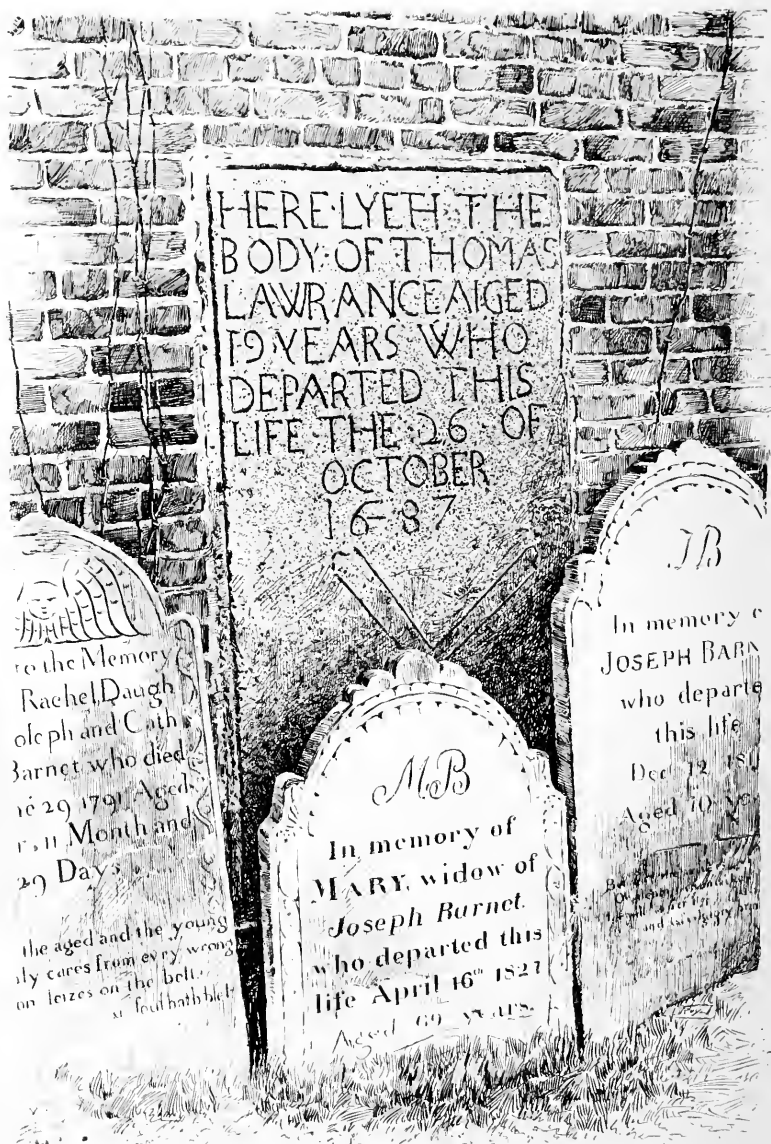 HERE·LYETH·THE
BODY·OF THOMAS
LAWRANCE AIGED
19·YEARS WHO
DEPARTED THIS
LIFE·THE·26 OF
OCTOBER
1687
to the Memory
Rachel, Daugh
oſeph and Cath
Barnet who died
29 1791, Aged
11 Month and
29 Days
the aged and the young
ly cares from evry wrong
on ſeizes on the
ſoul hath
MB
In memory of
MARY, widow of
Joseph Burnet.
who departed this
life April 16th 1827
Aged 69 years.
JB
In memory o
JOSEPH BARN
who departe
this life
Dec 12
Aged